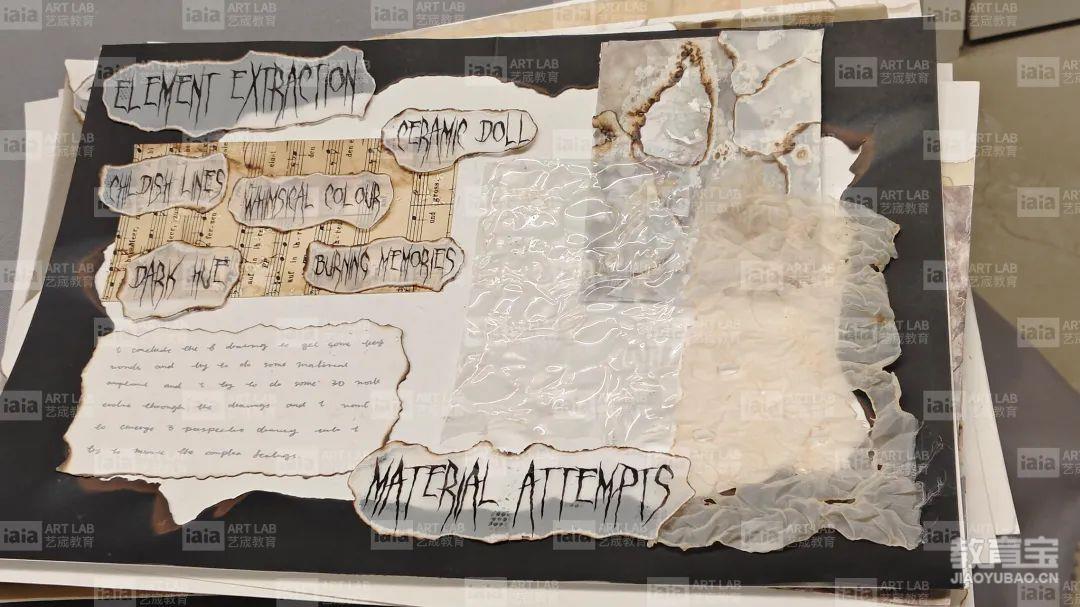 ELEMENT EXTRACTION
CERAMIC DOLL
CHILDISH LINES
WHIMSICAL COLOUR
DARK HUE
BURNING MEMORIES
I conclude the 6 drawing to get some key
words and try to do some material
and I try to do some 3D work
evolve through the drawings and I want
to emerge 3 perspective drawing into 1
try to the complex feelings.
MATERIAL ATTEMPTS
iaia ART LAB
艺宬教育
教育宝
JIAOYUBAO.CN